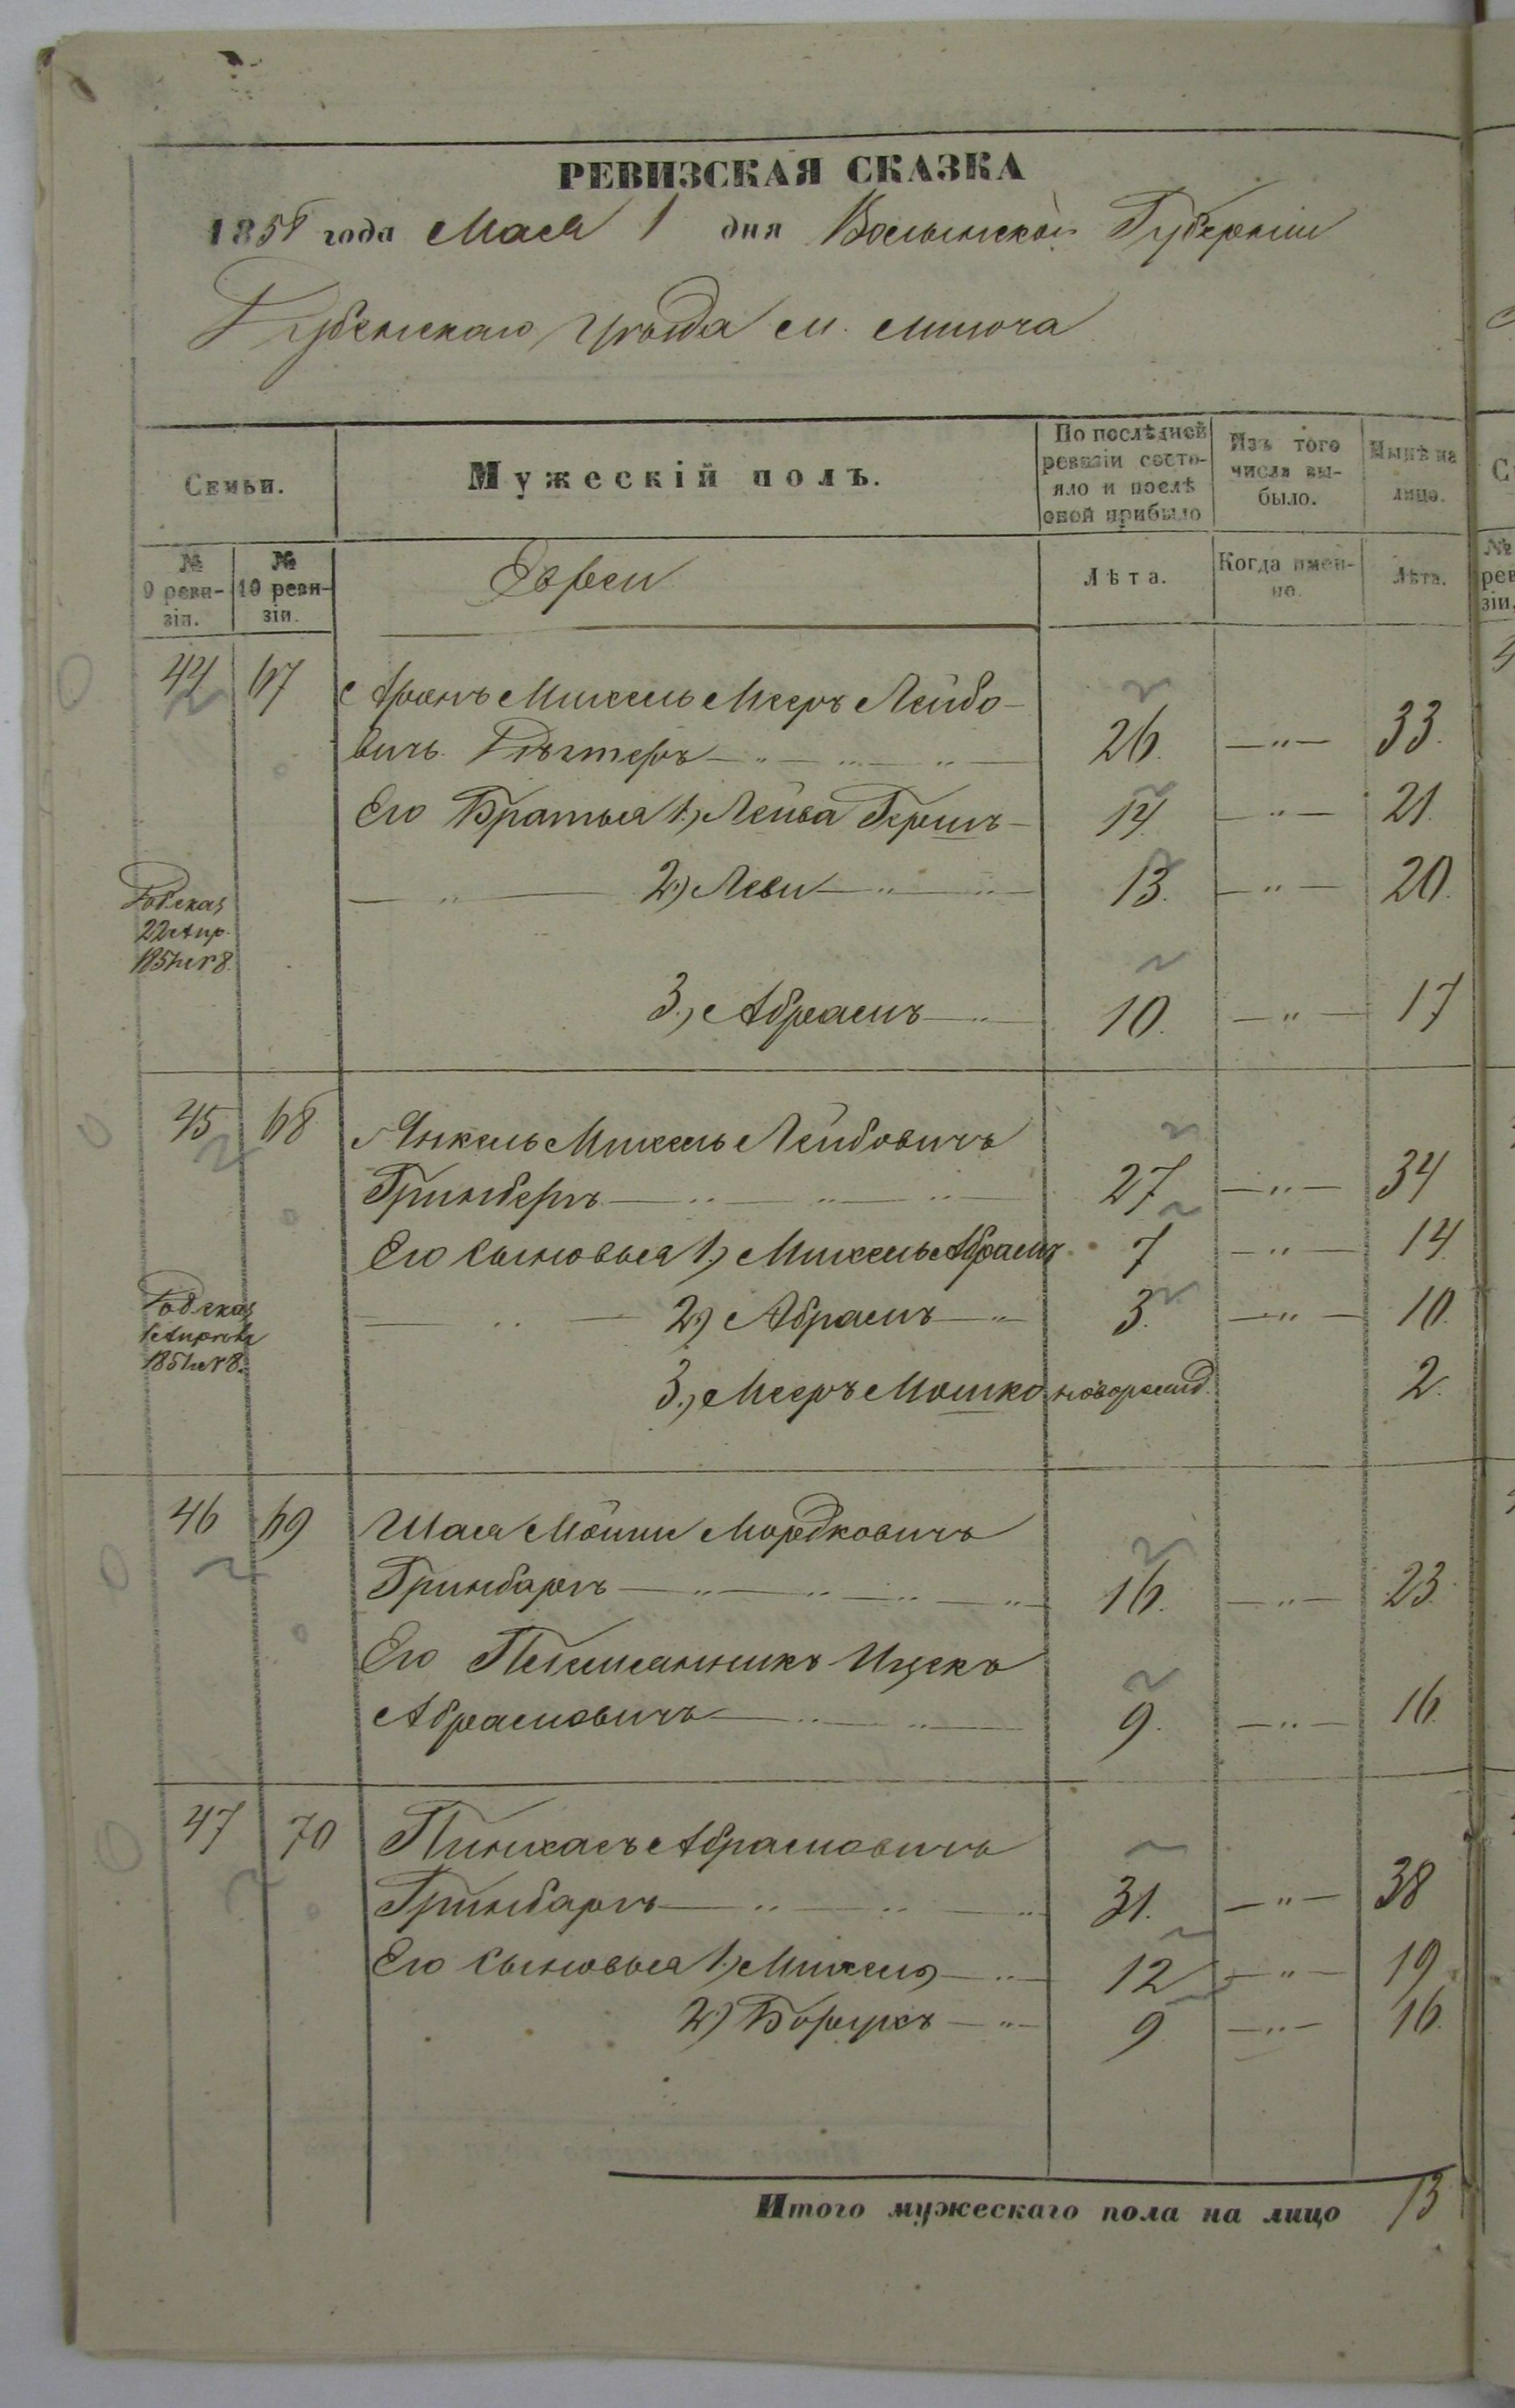 РЕВИЗСКАЯ СКАЗКА
1858 года Мая 1 дня Волынской Губерніи
Дубенскаго Уѣзда м. Млинова
Семьи.
Мужескій полъ.
По послѣдней ревизіи состо-
яло и послѣ
оной прибыло
Изъ того
числа вы-
было.
Нынѣ на
лицо.
№
9 реви-
зіи.
№
10 реви-
зіи.
Евреи
Лѣта.
Когда имен-
но.
Лѣта.
44 67 Аронъ Михель Мееръ Лейбо-
вичь 26. —"— 33.
Его Братья 1.) Лейба Гершъ — 14. —"— 21.
—"— 2.) Леви —"— 13. —"— 20.
3.) Абрамъ —"— 10. —"— 17
45 68 Янкель Михель Лейбовичъ
Гринбергъ —"— 27 —"— 34
Его Сыновья 1.) Михель Абрамъ 7 —"— 14.
—"— 2.) Абрамъ —"— 3. —"— 10.
3.) Мееръ Мошко новорожд. 2.
46 69 Шая Мойше Мордковичъ
Гринбаргъ —"— 16. —"— 23.
Его Племянникъ Ицекъ
Абрамовичъ —"— 9. —"— 16.
47 70 Пинхасъ Абрамовичъ
Гринбаргъ —"— 31. —"— 38
Его Сыновья 1.) Михель —"— 12 —"— 19.
2.) Борухъ —"— 9 —"— 16.
Итого мужескаго пола на лицо 13